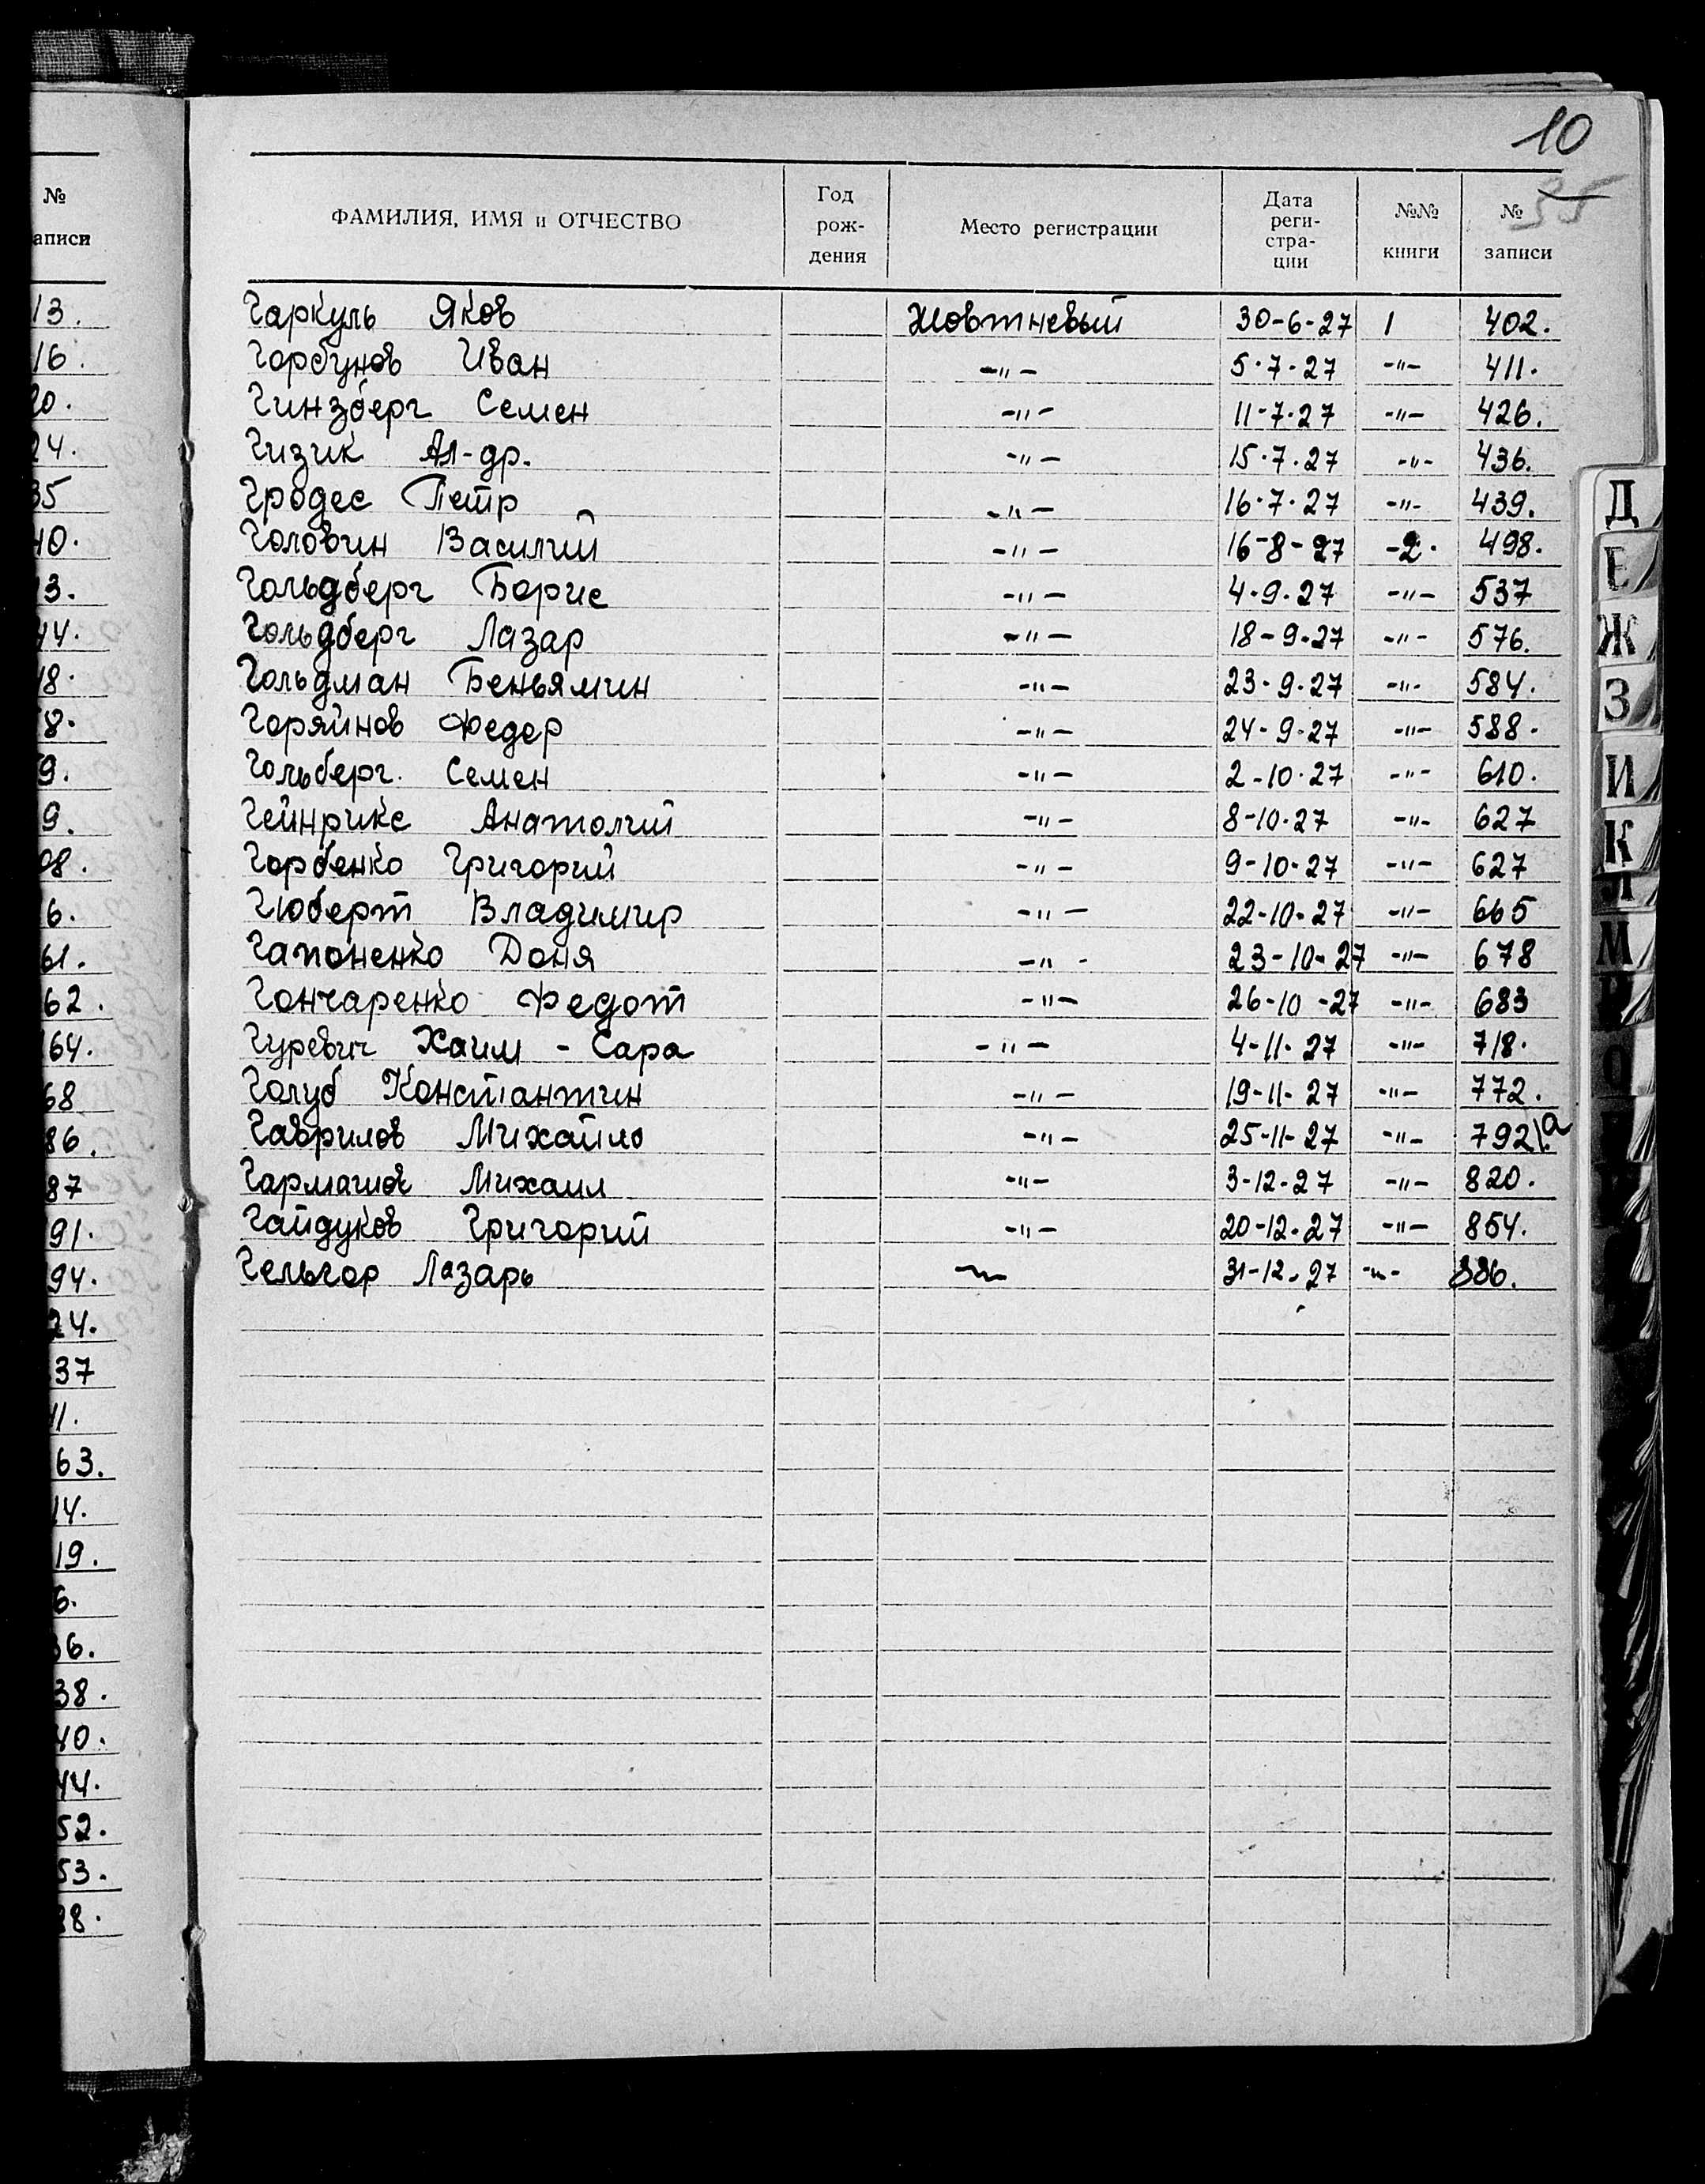 10
35
№
аписи
ФАМИЛИЯ, ИМЯ и ОТЧЕСТВО Год рождения Место регистрации Дата реги-стра-ции №№ книги № записи
Гаркуль Яков Жовтневый 30-6-27 1 402.
Горбунов Иван -"- 5-7-27 -"- 411.
Гинзберг Семен -"- 11-7-27 -"- 426.
Гизик Ал-др. -"- 15-7-27 -"- 436.
Гродес Петр -"- 16-7-27 -"- 439.
Головин Василий -"- 16-8-27 -2- 498.
Гольдберг Борис -"- 4-9-27 -"- 537
Гольдберг Лазар -"- 18-9-27 -"- 576.
Гольдман Беньямин -"- 23-9-27 -"- 584.
Горяйнов Федер -"- 24-9-27 -"- 588.
Гольберг. Семен -"- 2-10-27 -"- 610.
Гейнрикс Анатолий -"- 8-10-27 -"- 627
Горбенко Григорий -"- 9-10-27 -"- 627
Гюберт Владимир -"- 22-10-27 -"- 665
Гапоненко Доня -"- 23-10-27 -"- 678
Гончаренко Федот -"- 26-10-27 -"- 683
Гуревич Хаим - Сара -"- 4-11-27 -"- 718.
Голуб Константин -"- 19-11-27 -"- 772.
Гаврилов Михайло -"- 25-11-27 -"- 792а
Гармашов Михаил -"- 3-12-27 -"- 820.
Гайдуков Григорий -"- 20-12-27 -"- 854.
Гельгор Лазарь -"- 31-12-27 -"- 886.
13.
16.
20.
24.
35
40.
3.
44.
48.
8.
9.
9.
08.
6.
61.
62.
64.
68
86.
87
91.
94.
24.
37
11.
63.
14.
19.
6.
36.
38.
40.
44.
52.
53.
98.
Д
Е
Ж
З
И
К
Л
М